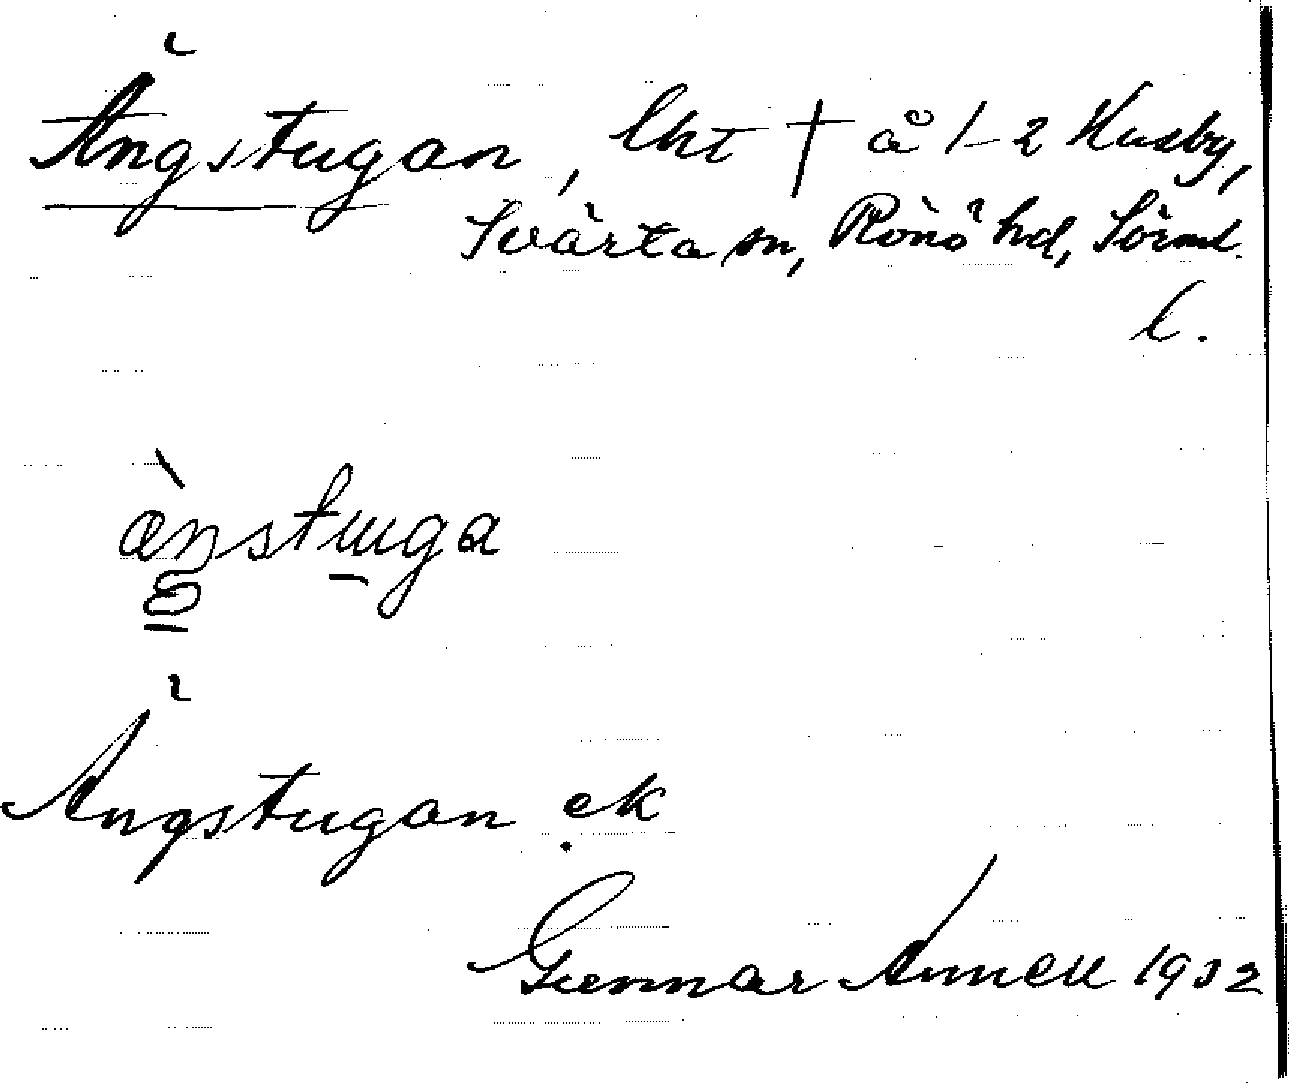 Ängstugan, lht † å 1-2 Husby,
Svärta sn, Rönö hd, Sörml.
l.
ä̀ŋstɯga
Ängstugan ek
Gunnar Annell 1932